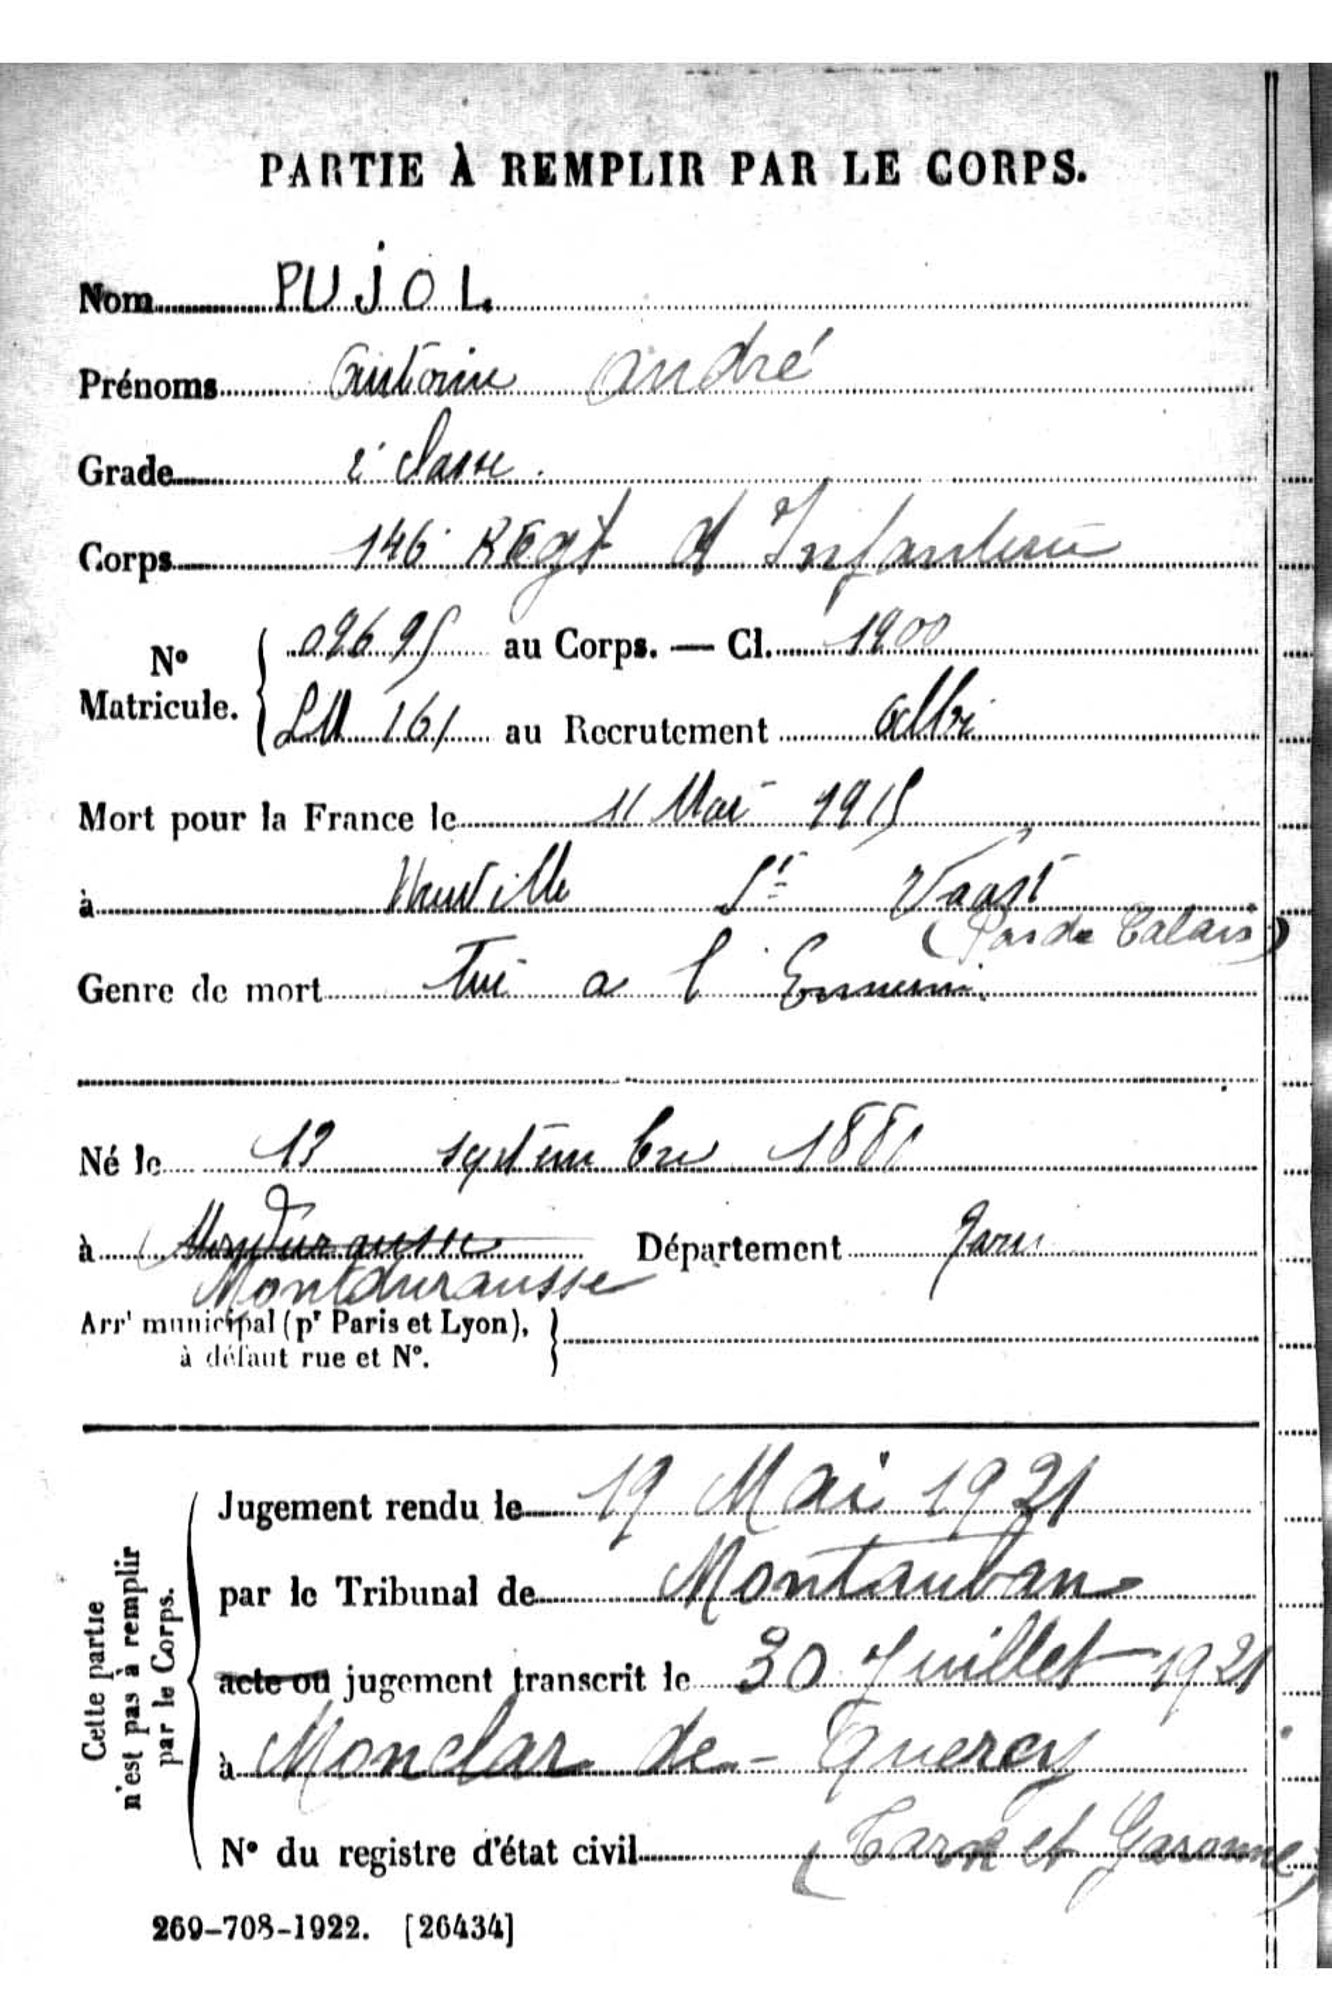 PARTIE À REMPLIR PAR LE CORPS.
Nom PUJOL
Prénoms Antoine André
Grade 2e classe
Corps 146e Régt d'Infanterie
No Matricule. 09695 au Corps. — Cl. 1900
LM 161 au Recrutement Albi
Mort pour la France le 11 Mai 1915
à Neuville St Vaast
(Pas de Calais)
Genre de mort Tué a l'Ennemi.
Né le 13 septembre 1880
à Montdurausse Département Tarn
Montdurausse
Arrt municipal (pr Paris et Lyon),
à défaut rue et No.
Cette partie
n'est pas à remplir
par le Corps.
Jugement rendu le 19 Mai 1921
par le Tribunal de Montauban
acte ou jugement transcrit le 30 Juillet 1921
à Monclar de-Quercy
No du registre d'état civil (Tarn et Garonne)
269-708-1922. [26434]